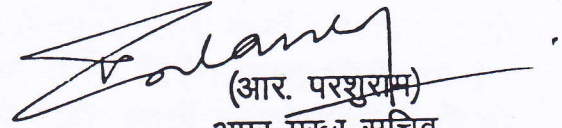 (आर. परशुराम)
अपर मुख्य सचिव